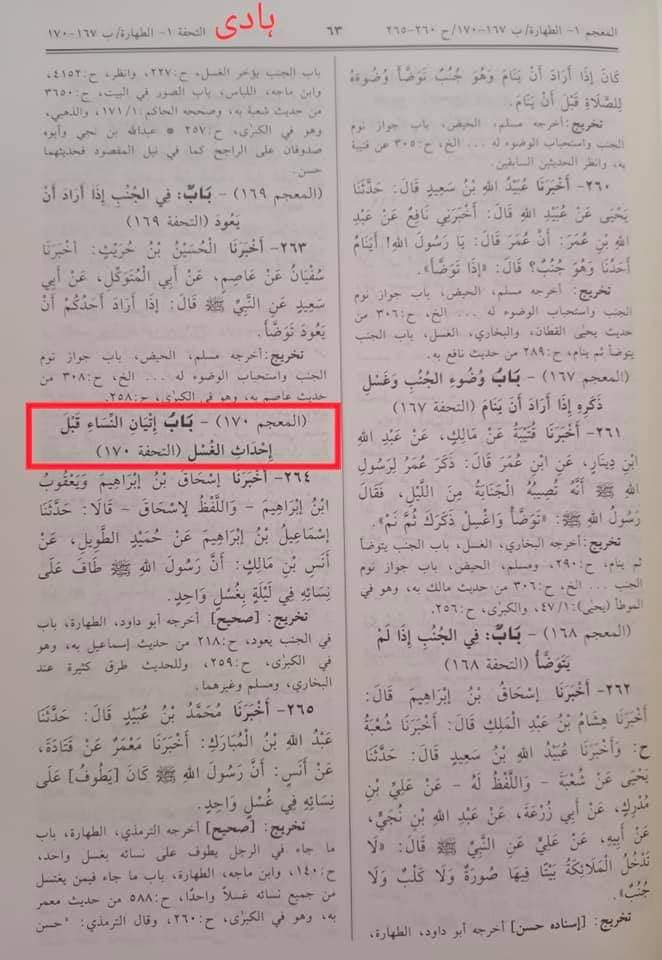 المعجم ١- الطهارة/ب ١٦٧-١٧٠/ح ٢٦٠-٢٦٥
٦٣
هادی
التحفة ١- الطهارة/ب ١٦٧-١٧٠
كَانَ إِذَا أَرَادَ أَنْ يَنَامَ وَهُوَ جُنُبٌ تَوَضَّأَ وُضُوءَهُ
لِلصَّلَاةِ قَبْلَ أَنْ يَنَامَ.
تخريج: أخرجه مسلم، الحيض، باب جواز نوم
الجنب واستحباب الوضوء له ... الخ، ح:٣٠٥ عن قتيبة
به، وانظر الحديثين السابقين.
٢٦٠- أَخْبَرَنَا عُبَيْدُ اللهِ بْنُ سَعِيدٍ قَالَ: حَدَّثَنَا
يَحْيَى عَنْ عُبَيْدِ اللهِ قَالَ: أَخْبَرَنِي نَافِعٌ عَنْ عَبْدِ
اللهِ بْنِ عُمَرَ: أَنَّ عُمَرَ قَالَ: يَا رَسُولَ اللهِ! أَيَنَامُ
أَحَدُنَا وَهُوَ جُنُبٌ؟ قَالَ: «إِذَا تَوَضَّأَ».
تخريج: أخرجه مسلم، الحيض، باب جواز نوم
الجنب واستحباب الوضوء له ... الخ، ح:٣٠٦ من
حديث يحيى القطان، والبخاري، الغسل، باب الجنب
يتوضأ ثم ينام، ح:٢٨٩ من حديث نافع به.
(المعجم ١٦٧) - بَابُ وُضُوءِ الْجُنُبِ وَغَسْلِ
ذَكَرِهِ إِذَا أَرَادَ أَنْ يَنَامَ (التحفة ١٦٧)
٢٦١- أَخْبَرَنَا قُتَيْبَةُ عَنْ مَالِكٍ، عَنْ عَبْدِ اللهِ
ابْنِ دِينَارٍ، عَنِ ابْنِ عُمَرَ قَالَ: ذَكَرَ عُمَرُ لِرَسُولِ
اللهِ ﷺ أَنَّهُ تُصِيبُهُ الْجَنَابَةُ مِنَ اللَّيْلِ، فَقَالَ
رَسُولُ اللهِ ﷺ: «تَوَضَّأْ وَاغْسِلْ ذَكَرَكَ ثُمَّ نَمْ».
تخريج: أخرجه البخاري، الغسل، باب الجنب يتوضأ
ثم ينام، ح:٢٩٠، ومسلم، الحيض، باب جواز نوم
الجنب ... الخ، ح:٣٠٦ من حديث مالك به، وهو في
الموطأ (يحيى):١/٤٧، والكبرى، ح:٢٥٦.
(المعجم ١٦٨) - بَابٌ: فِي الْجُنُبِ إِذَا لَمْ
يَتَوَضَّأْ (التحفة ١٦٨)
٢٦٢- أَخْبَرَنَا إِسْحَاقُ بْنُ إِبْرَاهِيمَ قَالَ:
أَخْبَرَنَا هِشَامُ بْنُ عَبْدِ الْمَلِكِ قَالَ: أَخْبَرَنَا شُعْبَةُ
ح: وَأَخْبَرَنَا عُبَيْدُ اللهِ بْنُ سَعِيدٍ قَالَ: حَدَّثَنَا
يَحْيَى عَنْ شُعْبَةَ - وَاللَّفْظُ لَهُ - عَنْ عَلِيِّ بْنِ
مُدْرِكٍ، عَنْ أَبِي زُرْعَةَ، عَنْ عَبْدِ اللهِ بْنِ نُجَيٍّ،
عَنْ أَبِيهِ، عَنْ عَلِيٍّ عَنِ النَّبِيِّ ﷺ قَالَ: «لَا
تَدْخُلُ الْمَلَائِكَةُ بَيْتًا فِيهَا صُورَةٌ وَلَا كَلْبٌ وَلَا
جُنُبٌ».
تخريج: [إسناده حسن] أخرجه أبو داود، الطهارة،
باب الجنب يؤخر الغسل، ح:٢٢٧، وانظر، ح:٤١٥٢،
وابن ماجه، اللباس، باب الصور في البيت، ح:٣٦٥٠
من حديث شعبة به، وصححه الحاكم:١/١٧١، والذهبي،
وهو في الكبرى، ح:٢٥٧ * عبدالله بن نجي وأبوه
صدوقان على الراجح كما في نيل المقصود فحديثهما
حسن.
(المعجم ١٦٩) - بَابٌ: فِي الْجُنُبِ إِذَا أَرَادَ أَنْ
يَعُودَ (التحفة ١٦٩)
٢٦٣- أَخْبَرَنَا الْحُسَيْنُ بْنُ حُرَيْثٍ: أَخْبَرَنَا
سُفْيَانُ عَنْ عَاصِمٍ، عَنْ أَبِي الْمُتَوَكِّلِ، عَنْ أَبِي
سَعِيدٍ عَنِ النَّبِيِّ ﷺ قَالَ: إِذَا أَرَادَ أَحَدُكُمْ أَنْ
يَعُودَ تَوَضَّأَ.
تخريج: أخرجه مسلم، الحيض، باب جواز نوم
الجنب واستحباب الوضوء له ... الخ، ح:٣٠٨ من
حديث عاصم به، وهو في الكبرى، ح:٢٥٨.
(المعجم ١٧٠) - بَابُ إِتْيَانِ النِّسَاءِ قَبْلَ
إِحْدَاثِ الْغُسْلِ (التحفة ١٧٠)
٢٦٤- أَخْبَرَنَا إِسْحَاقُ بْنُ إِبْرَاهِيمَ وَيَعْقُوبُ
ابْنُ إِبْرَاهِيمَ - وَاللَّفْظُ لِإِسْحَاقَ - قَالَا: حَدَّثَنَا
إِسْمَاعِيلُ بْنُ إِبْرَاهِيمَ عَنْ حُمَيْدٍ الطَّوِيلِ، عَنْ
أَنَسِ بْنِ مَالِكٍ: أَنَّ رَسُولَ اللهِ ﷺ طَافَ عَلَى
نِسَائِهِ فِي لَيْلَةٍ بِغُسْلٍ وَاحِدٍ.
تخريج: [صحيح] أخرجه أبو داود، الطهارة، باب
في الجنب يعود، ح:٢١٨ من حديث إسماعيل به، وهو
في الكبرى، ح:٢٥٩، وللحديث طرق كثيرة عند
البخاري، ومسلم وغيرهما.
٢٦٥- أَخْبَرَنَا مُحَمَّدُ بْنُ عُبَيْدٍ قَالَ: حَدَّثَنَا
عَبْدُ اللهِ بْنُ الْمُبَارَكِ: أَخْبَرَنَا مَعْمَرٌ عَنْ قَتَادَةَ،
عَنْ أَنَسٍ: أَنَّ رَسُولَ اللهِ ﷺ كَانَ [يَطُوفُ] عَلَى
نِسَائِهِ فِي غُسْلٍ وَاحِدٍ.
تخريج: [صحيح] أخرجه الترمذي، الطهارة، باب
ما جاء في الرجل يطوف على نسائه بغسل واحد،
ح:١٤٠، وابن ماجه، الطهارة، باب ما جاء فيمن يغتسل
من جميع نسائه غسلًا واحدًا، ح:٥٨٨ من حديث معمر
به، وهو في الكبرى، ح:٢٦٠، وقال الترمذي: "حسن